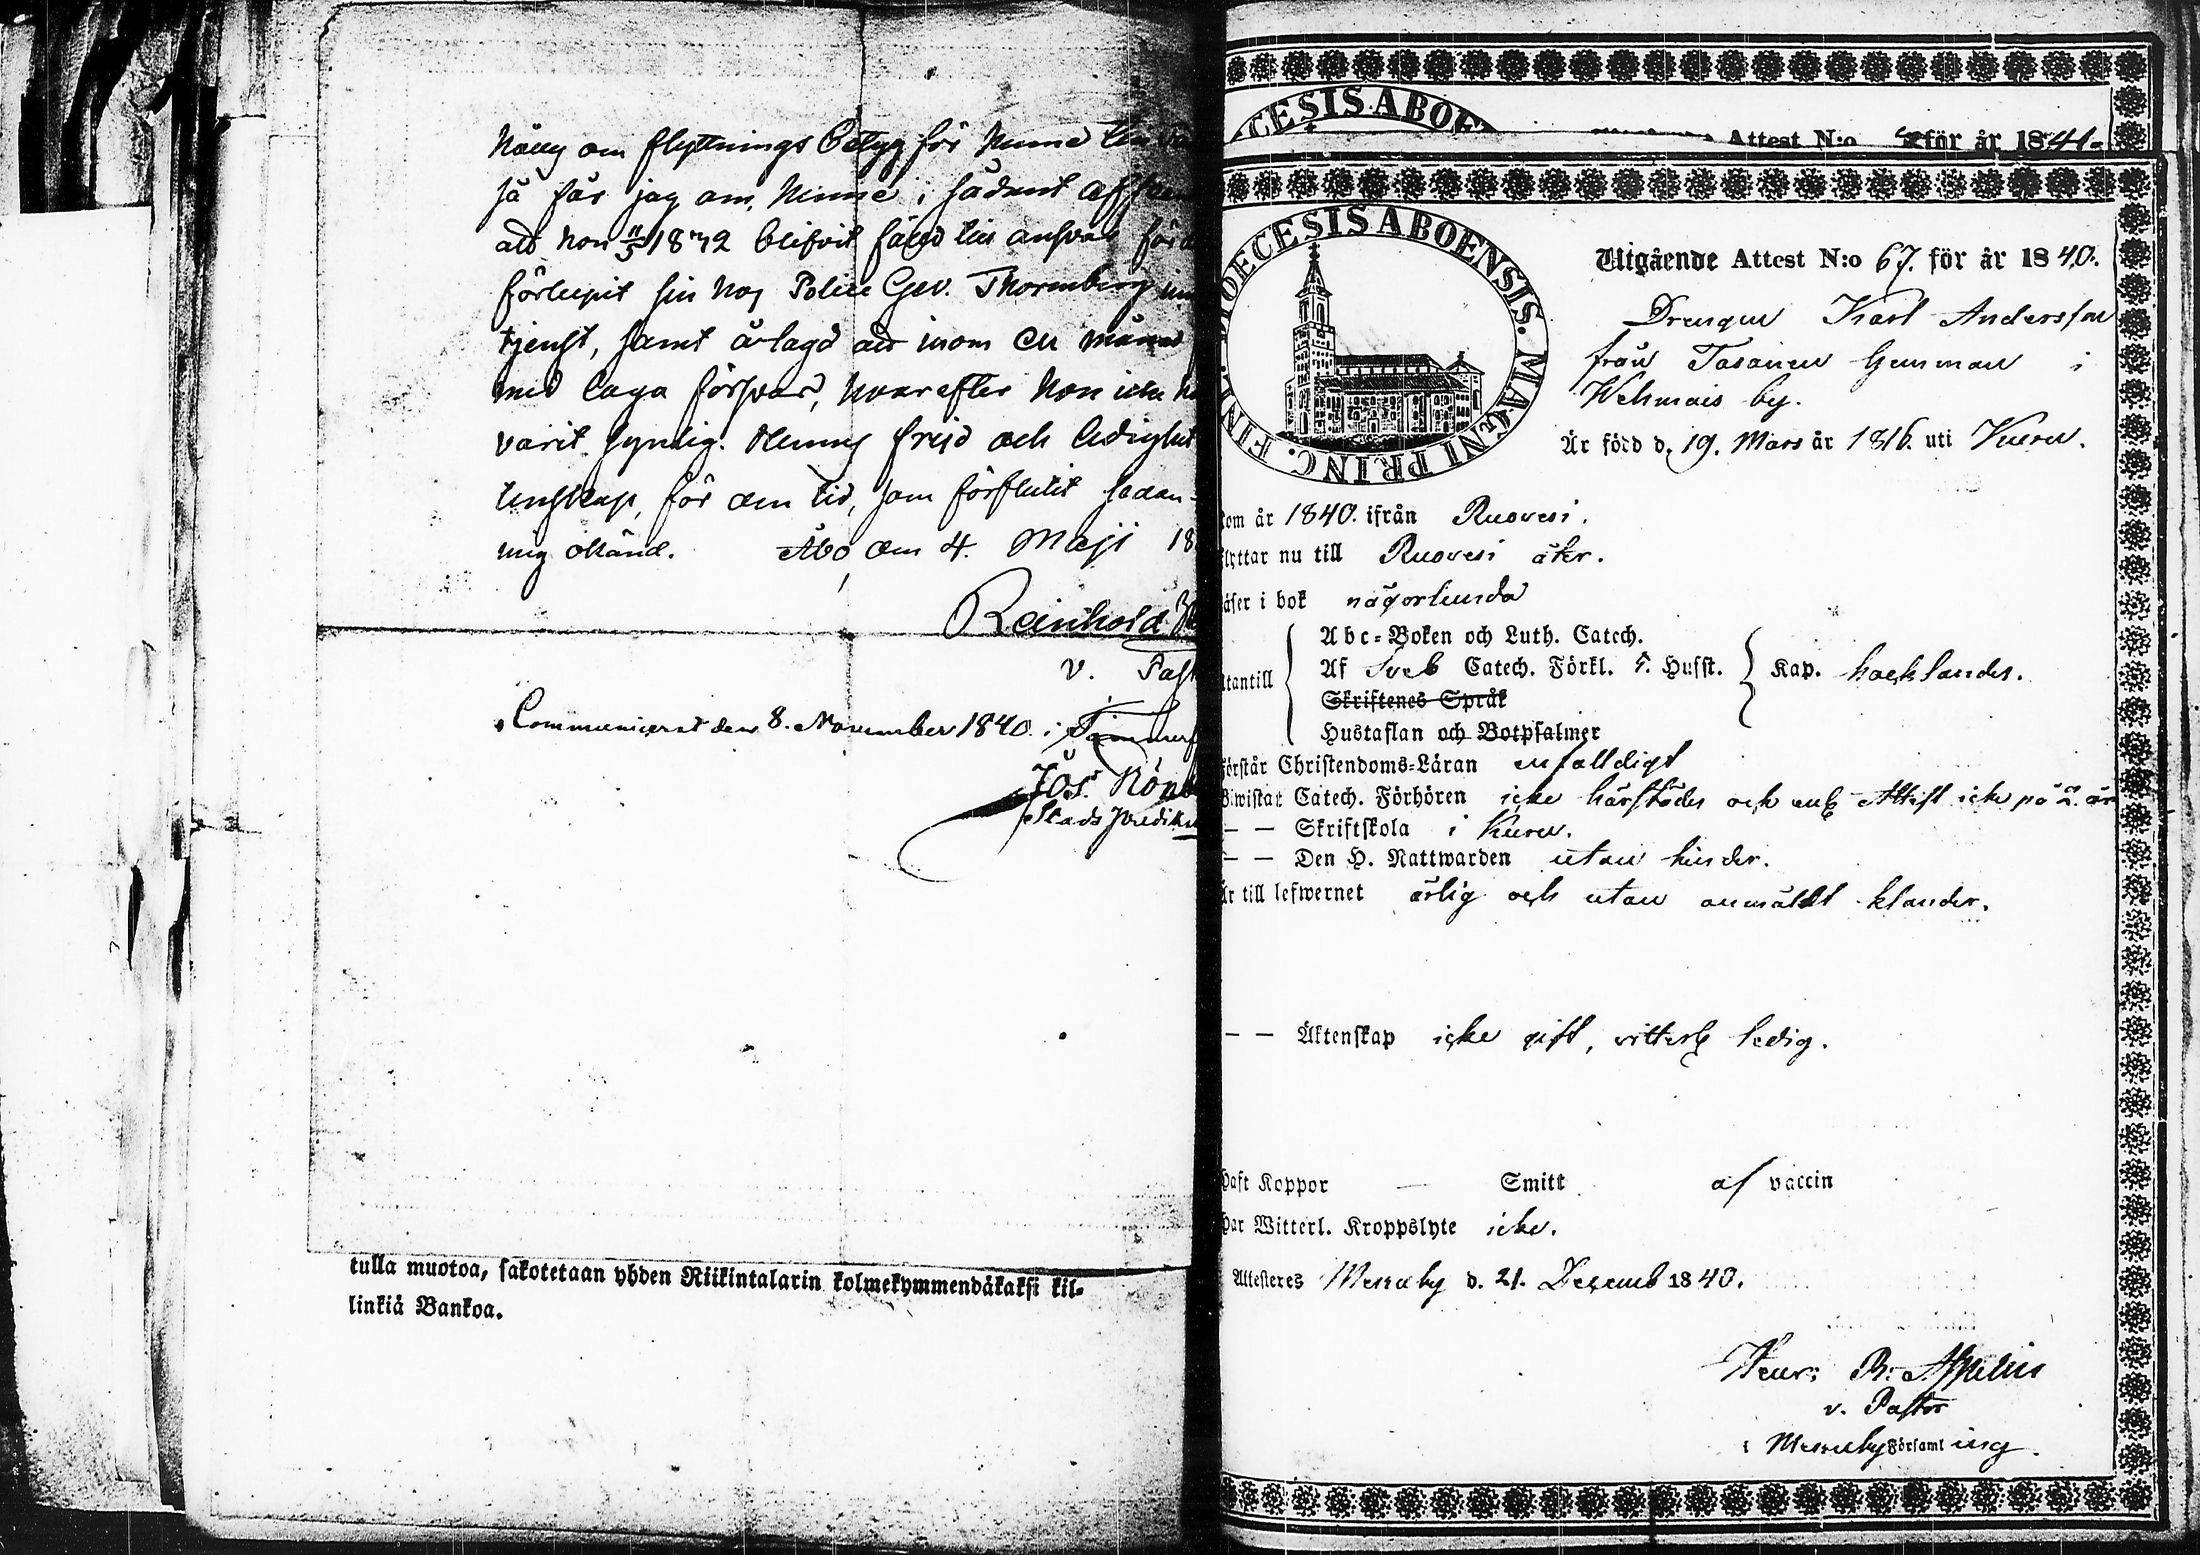 om flyttnings betyg för
så får jag om, i sådant
att hon 11/5 1842 blifvit till ansvar
förlupit sin hos Police Gev. Thormberg
tjenst, samt ålagd att inom en månad
med laga försvar, hvarefter hon icke
varit synlig. Hennes frejd och ledighet
för den tid, som förflutit sedan
mig okänd. Åbo den 4. Maji 18
Reinhold
v. Past
Communicerat den 8. November 1840. i
Jos.
Stads Predik
tulla muotoa, sakotetaan yhden Riikintalarin kolmekymmendäkaksi kil-
linkiä Bankoa.
CESIS ABOE
Attest N:o för år 1841.
DIOECESIS ABOENSIS. MAGNI PRINC. FINL.
Utgående Attest N:o 67. för år 1840.
Drengen Karl Andersson
från Tasanen Gunman i
Wehmais by.
Är född d. 19. Mars år 1816. uti Kuru.
om år 1840. ifrån Ruovesi.
lyttar nu till Ruovesi åter.
äser i bok någorlunda
Abc-Boken och Luth. Catech.
Utantill Af Sveb Catech. Förkl. o. Hufst. Kap. hacklandes.
Skriftenes Språk
Hustaflan och Botpsalmer
Förstår Christendoms-Läran enfalldigt
Biwistat Catech. Förhören icke härstädes och enl Attest icke på 2. år
— — Skriftskola i Kuru.
— — Den H. Nattwarden utan hinder.
Är till lefwernet ärlig och utan anmäldt klander.
— — Äktenskap icke gift, vitterl ledig.
Haft Koppor — Smitt af vaccin
Har Witterl. Kroppslyte icke.
Attesteres Messuby d. 21. Decemb 1840.
Henr: B: Appelius
v. Pastor
i Messuby Församling.